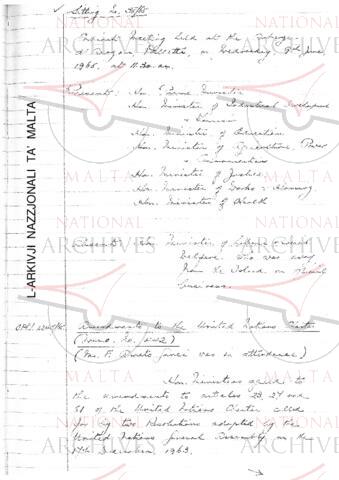 Sitting No. 35/65
Cabinet Meeting held at the Auberge
d'Aragon Valletta, on Wednesday, 9th June,
1965, at 11.30 a.m.
Present: Hon. Prime Minister
Hon. Minister of Industrial Development
& Tourism
Hon. Minister of Education
Hon. Minister of Agriculture, Power
& Communications
Hon. Minister of Justice
Hon. Minister of Works & Housing
Hon. Minister of Health
Absent: Hon. Minister of Labour & Social
Welfare, who was away
from the Island on
business.
Amendments to the United Nations Charter
(Memo. No.
(Mr. was in attendance)
Hon. Ministers agreed to
the amendments to articles 23, 27 and
61 of the United Nations Charter called
for by two Resolutions adopted by the
United Nations General Assembly on the
17th December, 1963.
L-ARKIVJI NAZZJONALI TA' MALTA
NATIONAL
MALTA
ARCHIVES